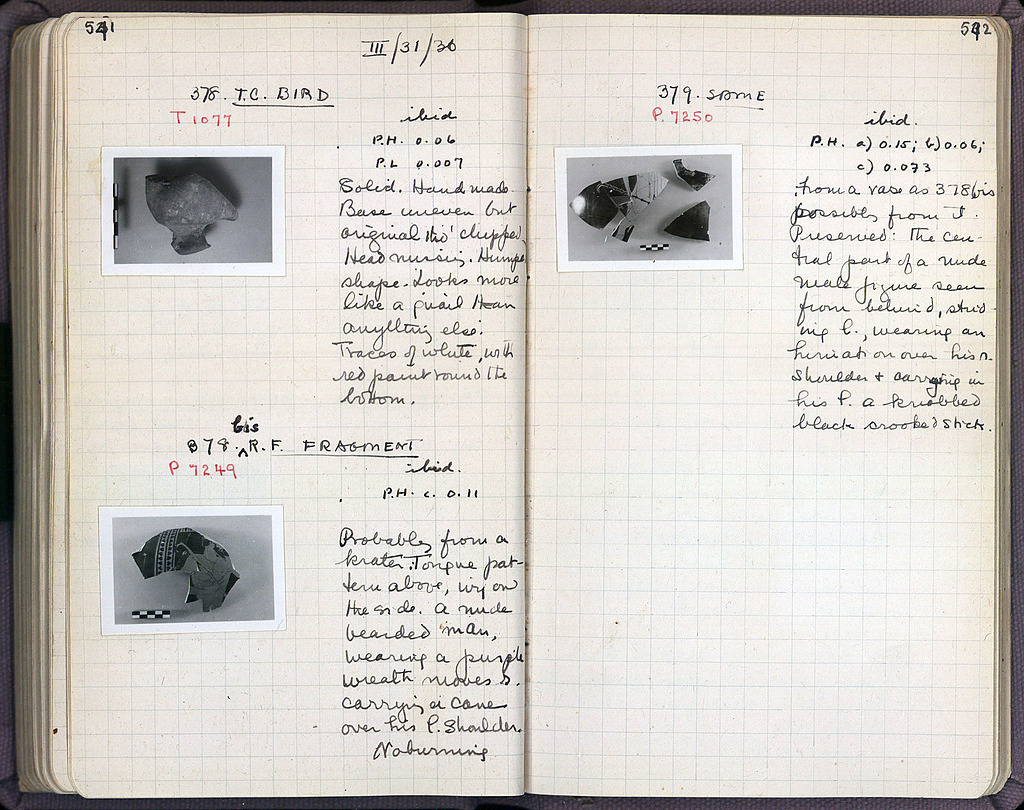 541
III/31/36
378. T.C. BIRD
T 1077
ibid
P.H. 0.06
P.L 0.007
Solid. Handmade
Base uneven but
original tho' chipped
Head missing. Humped
shape. Looks more
like a quail than
anything else.
Traces of white, with
red paint round the
bottom.
bis
378. ^ R.F. FRAGMENT
P 7249
ibid.
P.H. c. 0.11
Probably from a
krater. Tongue pat-
tern above, ivy on
the side. A nude
bearded man,
wearing a purple
wreath moves r.
carrying a cane
over his l. shoulder.
No burning
542
379. SAME
P. 7250
ibid.
P.H. a) 0.15; b) 0.06;
c) 0.073
From a vase as 378 bis
possibly from it.
Preserved: the cen-
tral part of a nude
male figure seen
from behind, strid-
ing l., wearing an
himation over his r.
shoulder + carrying in
his l. a knobbed
black crooked stick.